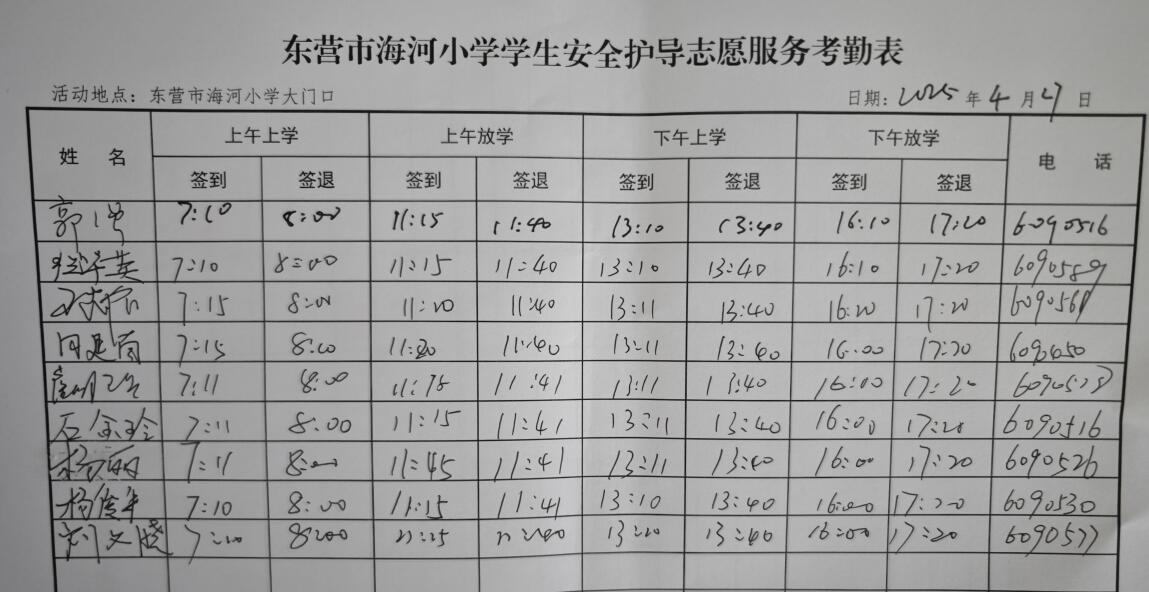 东营市海河小学学生安全护导志愿服务考勤表
活动地点：东营市海河小学大门口 日期：2025年4月27日
姓名 上午上学 上午放学 下午上学 下午放学 电话
签到 签退 签到 签退 签到 签退 签到 签退
郭强 7:10 8:00 11:15 11:40 13:10 13:40 16:10 17:20 6090516
7:10 8:00 11:15 11:40 13:10 13:40 16:10 17:20 6090589
7:15 8:00 11:20 11:40 13:11 13:40 16:20 17:20 6090561
7:15 8:00 11:20 11:40 13:11 13:40 16:00 17:20
7:11 8:00 11:41 13:11 13:40 16:00 17:20
石金玲 7:11 8:00 11:15 11:41 13:11 13:40 16:00 17:20 6090516
杨丽 7:11 8:00 11:45 11:41 13:11 13:40 16:00 17:20 6090526
杨俊年 7:10 8:00 11:15 11:41 13:10 13:40 16:00 17:20 6090530
刘文晓 7:20 8:00 11:40 13:20 13:40 16:00 17:20 6090577